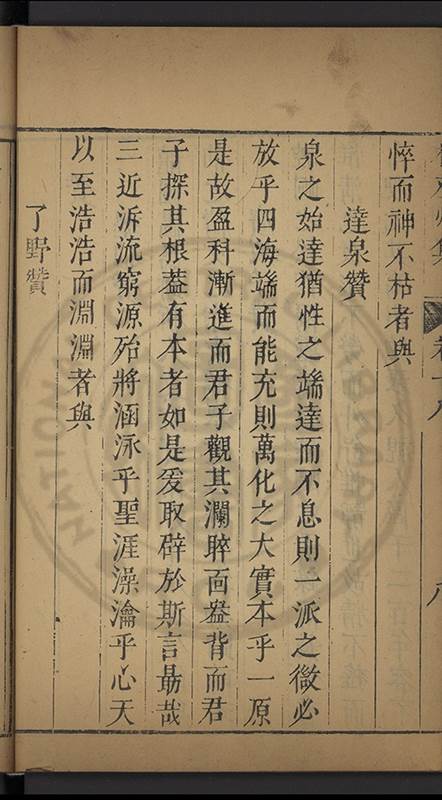 卷十八
八
悴而神不枯者與
達泉贊
泉之始達猶性之端達而不息則一派之微必
放乎四海端而能充則萬化之大實本乎一原
是故盈科漸進而君子觀其瀾睟面盎背而君
子探其根葢有本者如是爰取辟於斯言勗哉
三近泝流窮源殆將涵泳乎聖涯澡瀹乎心天
以至浩浩而淵淵者與
了野贊